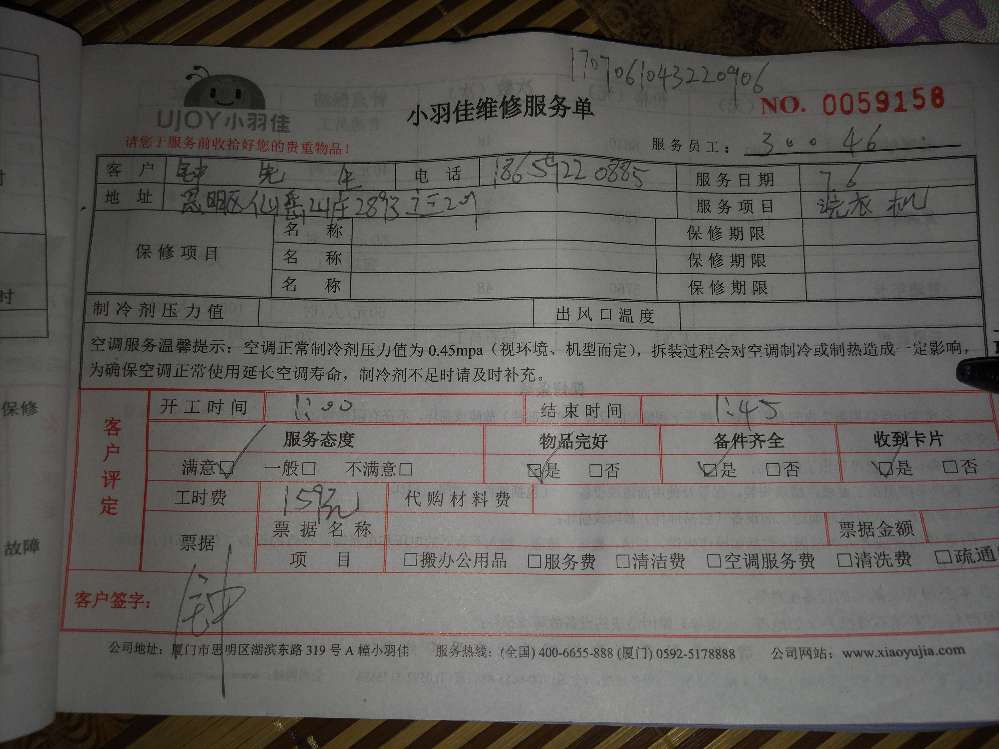 170706104322 0906
UJOY小羽佳
小羽佳维修服务单
NO. 0059158
请您于服务前收拾好您的贵重物品!
服务员工: 30046
客户 钟先生 电话 18659220885 服务日期 7.6
地址 思明区仙岳山庄 服务项目 洗衣机
保修项目 名称 保修期限
名称 保修期限
名称 保修期限
制冷剂压力值 出风口温度
空调服务温馨提示:空调正常制冷剂压力值为0.45mpa(视环境、机型而定),拆装过程会对空调制冷或制热造成一定影响,
为确保空调正常使用延长空调寿命,制冷剂不足时请及时补充。
客户评定
开工时间 1:00 结束时间 1:45
服务态度 物品完好 备件齐全 收到卡片
满意□ 一般□ 不满意□ □是 □否 □是 □否 □是 □否
工时费 159元 代购材料费
票据 票据名称 票据金额
项目 □搬办公用品 □服务费 □清洁费 □空调服务费 □清洗费 □疏通
客户签字: 钟
公司地址:厦门市思明区湖滨东路319号A幢小羽佳 服务热线:(全国)400-6655-888(厦门)0592-5178888 公司网站:www.xiaoyujia.com
保修
故障
时